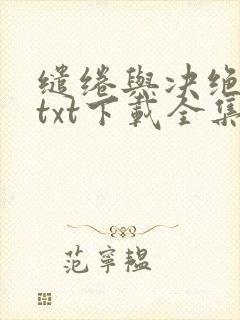 缱绻與决绝
txt下載全集
范寧韞